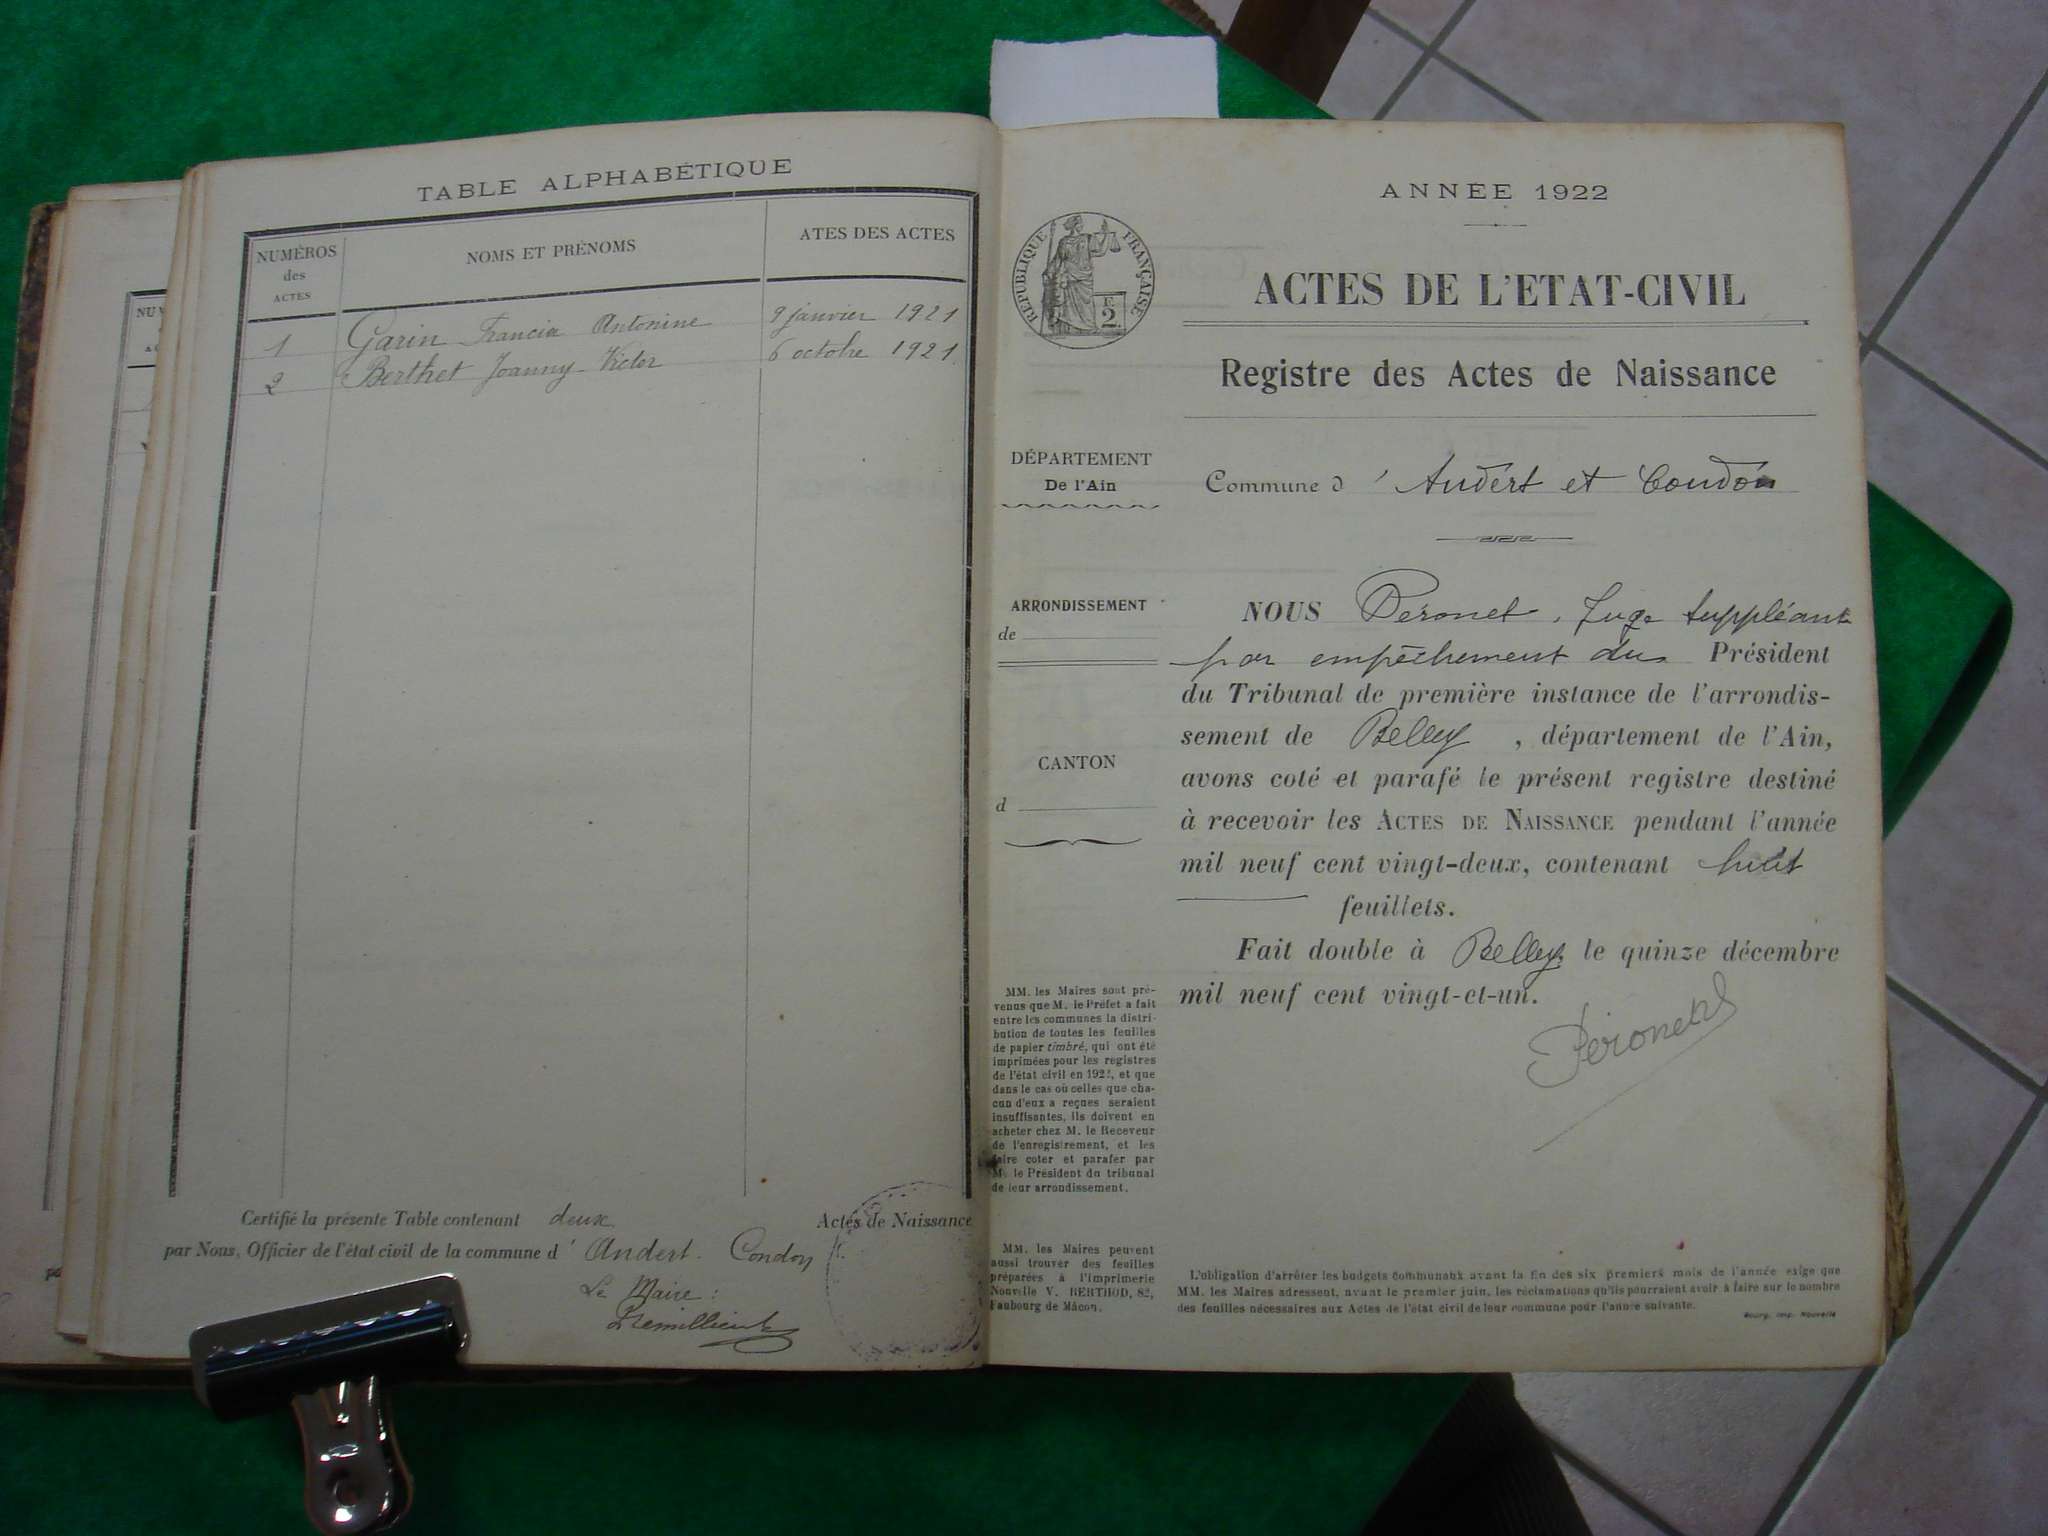 TABLE ALPHABÉTIQUE
NUMÉROS des ACTES
NOMS ET PRÉNOMS
ATES DES ACTES
1 Garin Francia Antonine 9 janvier 1921
2 Berthet Joanny Victor 6 octobre 1921
Certifié la présente Table contenant deux Actes de Naissance
par Nous, Officier de l'état civil de la commune d' Andert Condon
Le Maire :
ANNÉE 1922
RÉPUBLIQUE FRANÇAISE
E
2
ACTES DE L'ETAT-CIVIL
Registre des Actes de Naissance
DÉPARTEMENT
De l'Ain
Commune d'Andert et Condon
ARRONDISSEMENT
de
CANTON
d
NOUS Peronet, Juge Suppléant
par empêchement du Président
du Tribunal de première instance de l'arrondis-
sement de Belley, département de l'Ain,
avons coté et parafé le présent registre destiné
à recevoir les ACTES DE NAISSANCE pendant l'année
mil neuf cent vingt-deux, contenant huit
feuillets.
Fait double à Belley, le quinze décembre
mil neuf cent vingt-et-un.
Péronet
MM. les Maires sont pré-
venus que M. le Préfet a fait
entre les communes la distri-
bution de toutes les feuilles
de papier timbré, qui ont été
imprimées pour les registres
de l'état civil en 1922, et que
dans le cas où celles que cha-
cun d'eux a reçues seraient
insuffisantes, ils doivent en
acheter chez M. le Receveur
de l'enregistrement, et les
faire coter et parafer par
M. le Président du tribunal
de leur arrondissement.
MM. les Maires peuvent
aussi trouver des feuilles
préparées à l'Imprimerie
Nouvelle V. BERTHOD, 82,
Faubourg de Mâcon.
L'obligation d'arrêter les budgets communaux avant la fin des six premiers mois de l'année exige que
MM. les Maires adressent, avant le premier juin, les réclamations qu'ils pourraient avoir à faire sur le nombre
des feuilles nécessaires aux Actes de l'état civil de leur commune pour l'année suivante.
Bourg, Imp. Nouvelle